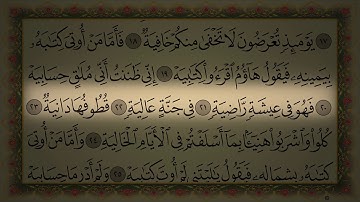 ١٧ يَوْمَئِذٍ تُعْرَضُونَ لَا تَخْفَىٰ مِنكُمْ خَافِيَةٌ ١٨ فَأَمَّا مَنْ أُوتِيَ كِتَابَهُ
بِيَمِينِهِ فَيَقُولُ هَاؤُمُ اقْرَءُوا كِتَابِيَهْ ١٩ إِنِّي ظَنَنتُ أَنِّي مُلَاقٍ حِسَابِيَهْ
٢٠ فَهُوَ فِي عِيشَةٍ رَّاضِيَةٍ ٢١ فِي جَنَّةٍ عَالِيَةٍ ٢٢ قُطُوفُهَا دَانِيَةٌ ٢٣
كُلُوا وَاشْرَبُوا هَنِيئًا بِمَا أَسْلَفْتُمْ فِي الْأَيَّامِ الْخَالِيَةِ ٢٤ وَأَمَّا مَنْ أُوتِيَ
كِتَابَهُ بِشِمَالِهِ فَيَقُولُ يَا لَيْتَنِي لَمْ أُوتَ كِتَابِيَهْ ٢٥ وَلَمْ أَدْرِ مَا حِسَابِيَهْ